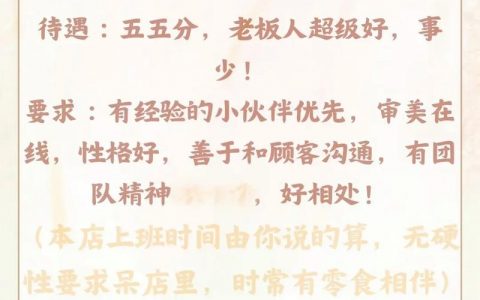 待遇：五五分，老板人超级好，事
少！
要求：有经验的小伙伴优先，审美在
线，性格好，善于和顾客沟通，有团
队精神，好相处！
（本店上班时间由你说的算，无硬
性要求呆店里，时常有零食相伴）